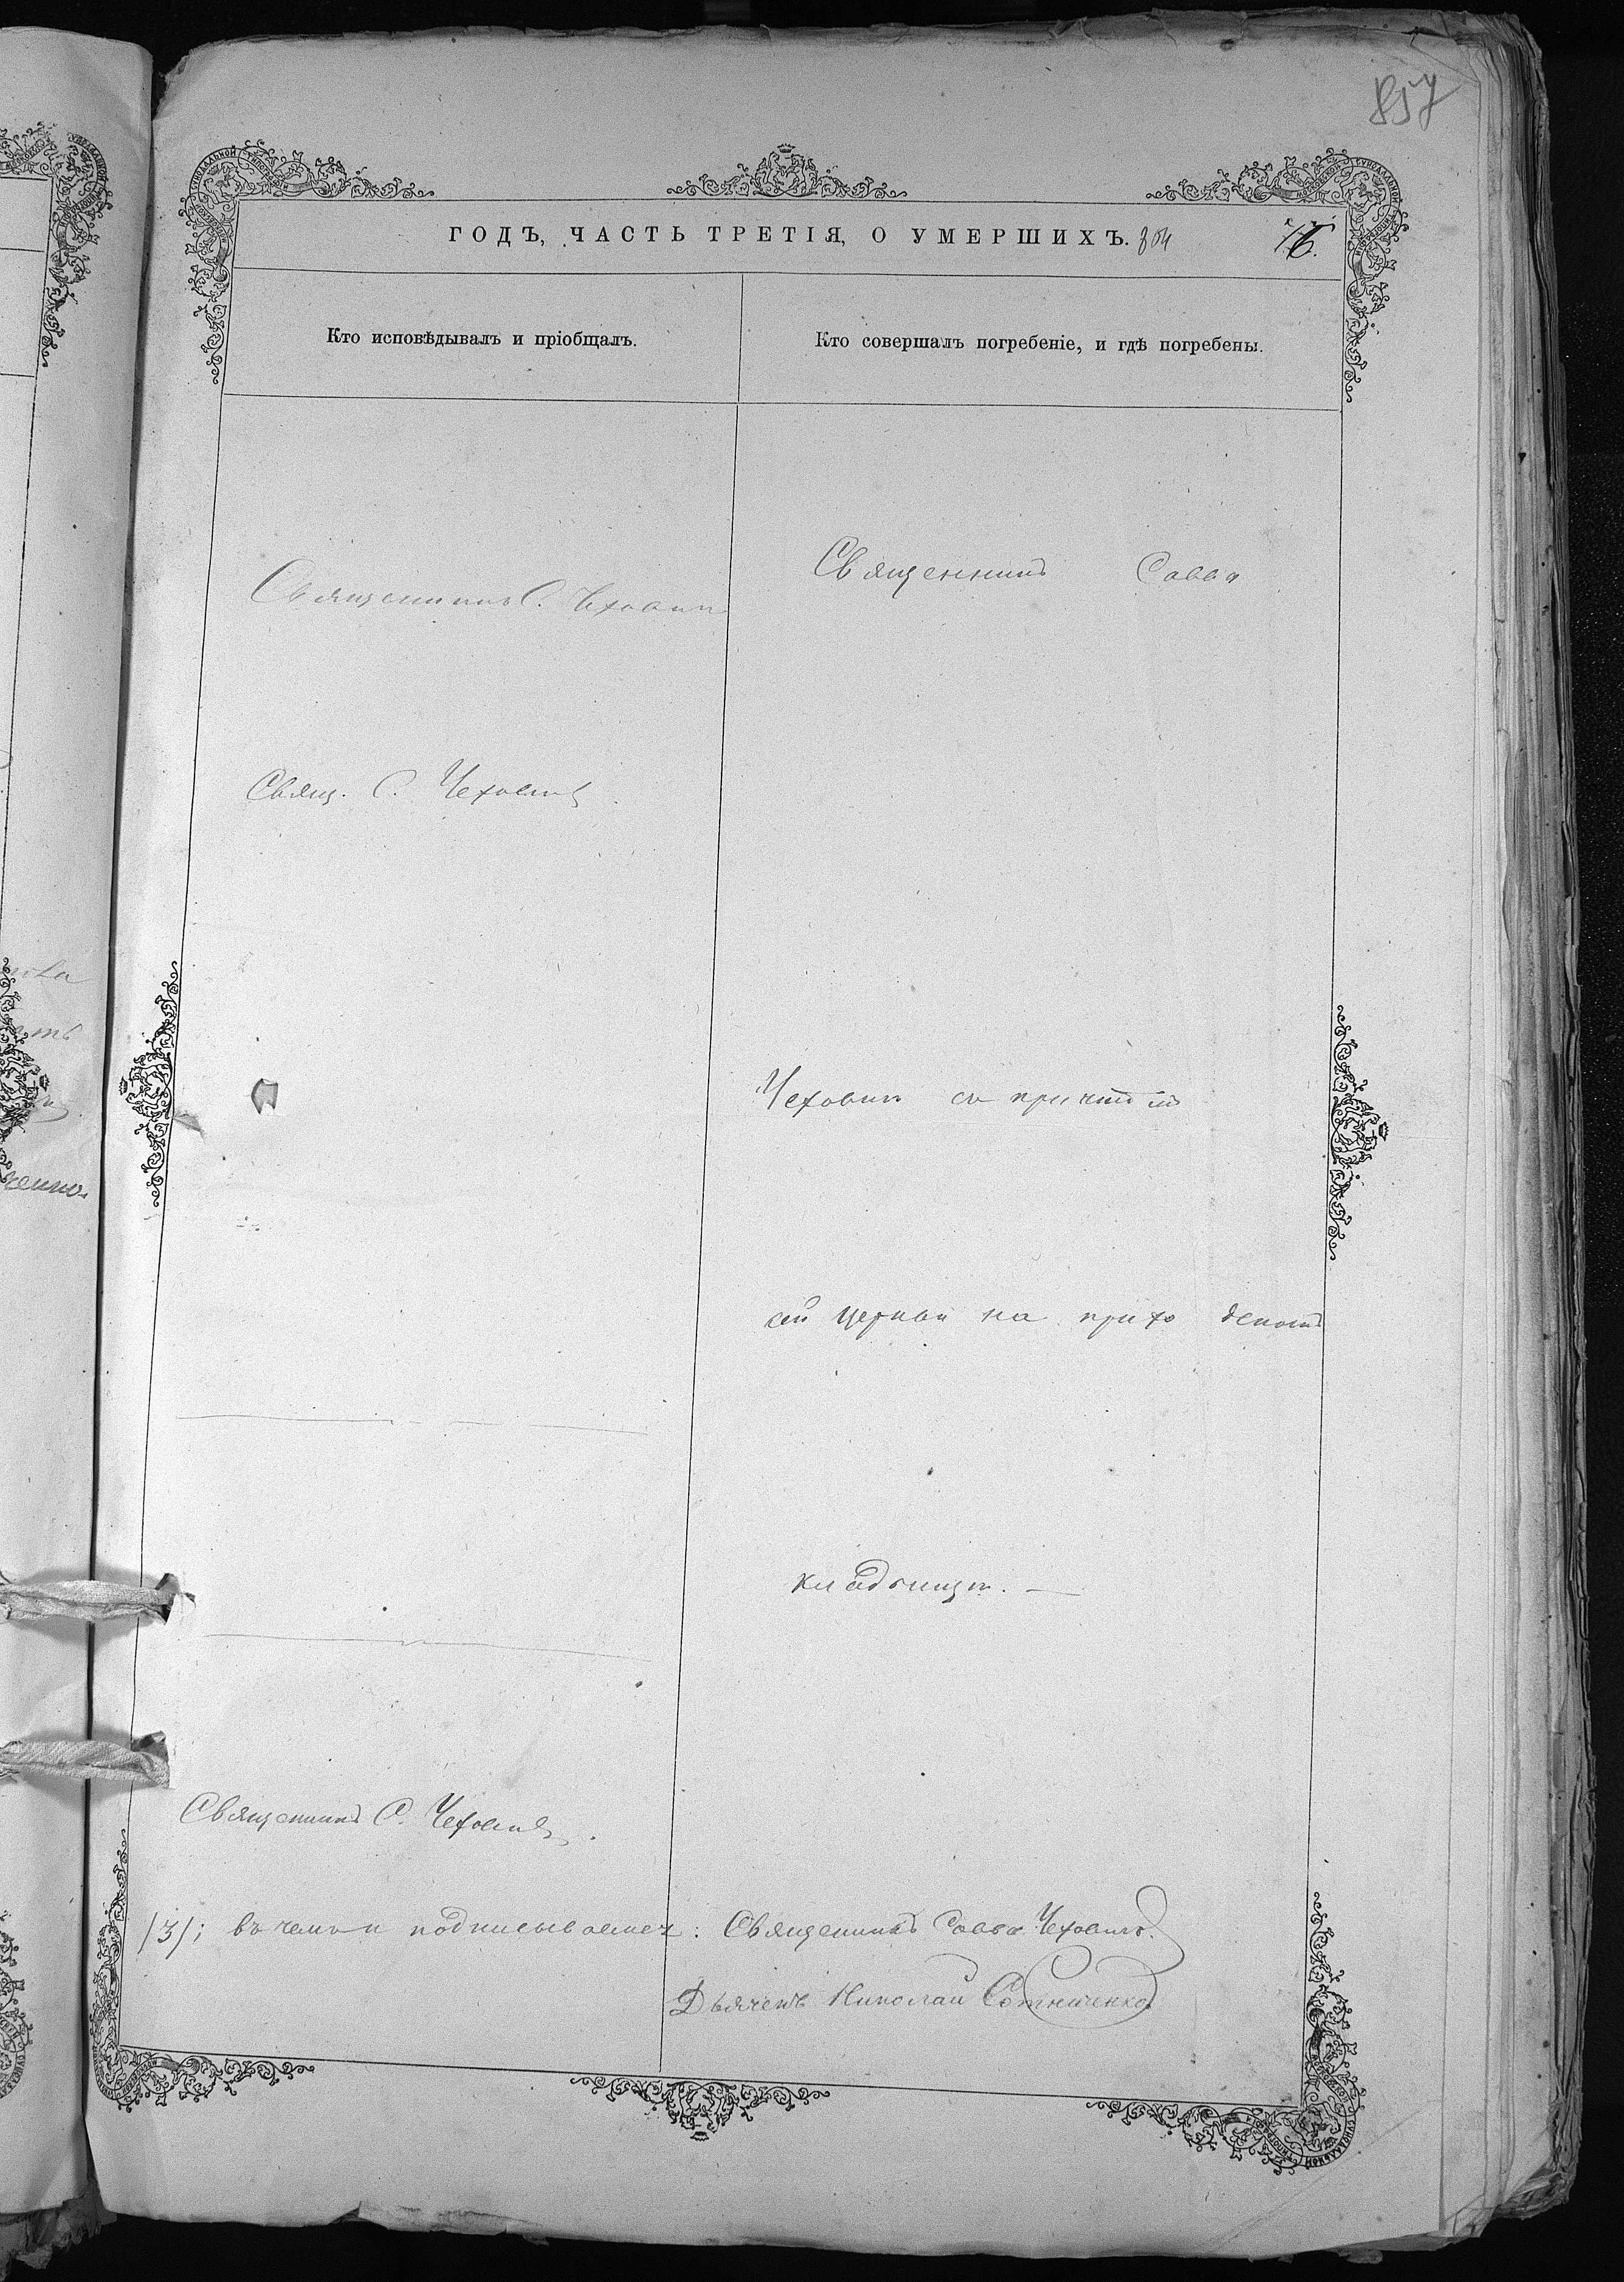 857
ГОДЪ, ЧАСТЬ ТРЕТІЯ, О УМЕРШИХЪ. 304 16.
Кто исповѣдывалъ и пріобщалъ.
Кто совершалъ погребеніе, и гдѣ погребены.
Священникъ С. Чеховичъ
Свящ. С. Чеховичъ
Священникъ Савва
Чеховичъ съ причтомъ
сей церкви на прихо дскомъ
кладбищѣ. —
Священникъ С. Чеховичъ.
/3/; въ чемъ и подписываемся: Священникъ Савва Чеховичъ.
Дьячекъ Николай Сотниченко